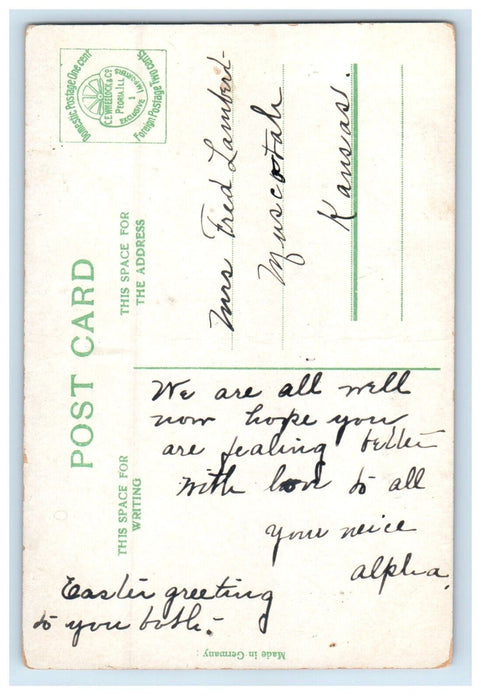 Domestic Postage One cent
Foreign Postage Two cents
C.E. WHEELOCK & CO.
PEORIA, ILL.
1
EXCLUSIVE IMPORTERS
POST CARD
THIS SPACE FOR
THE ADDRESS
Mrs Fred Lambert
Muscotah
Kansas.
THIS SPACE FOR
WRITING
We are all well
now hope you
are fealing better
with love to all
your neice
alpha.
Easter greeting
to you both.
Made in Germany: